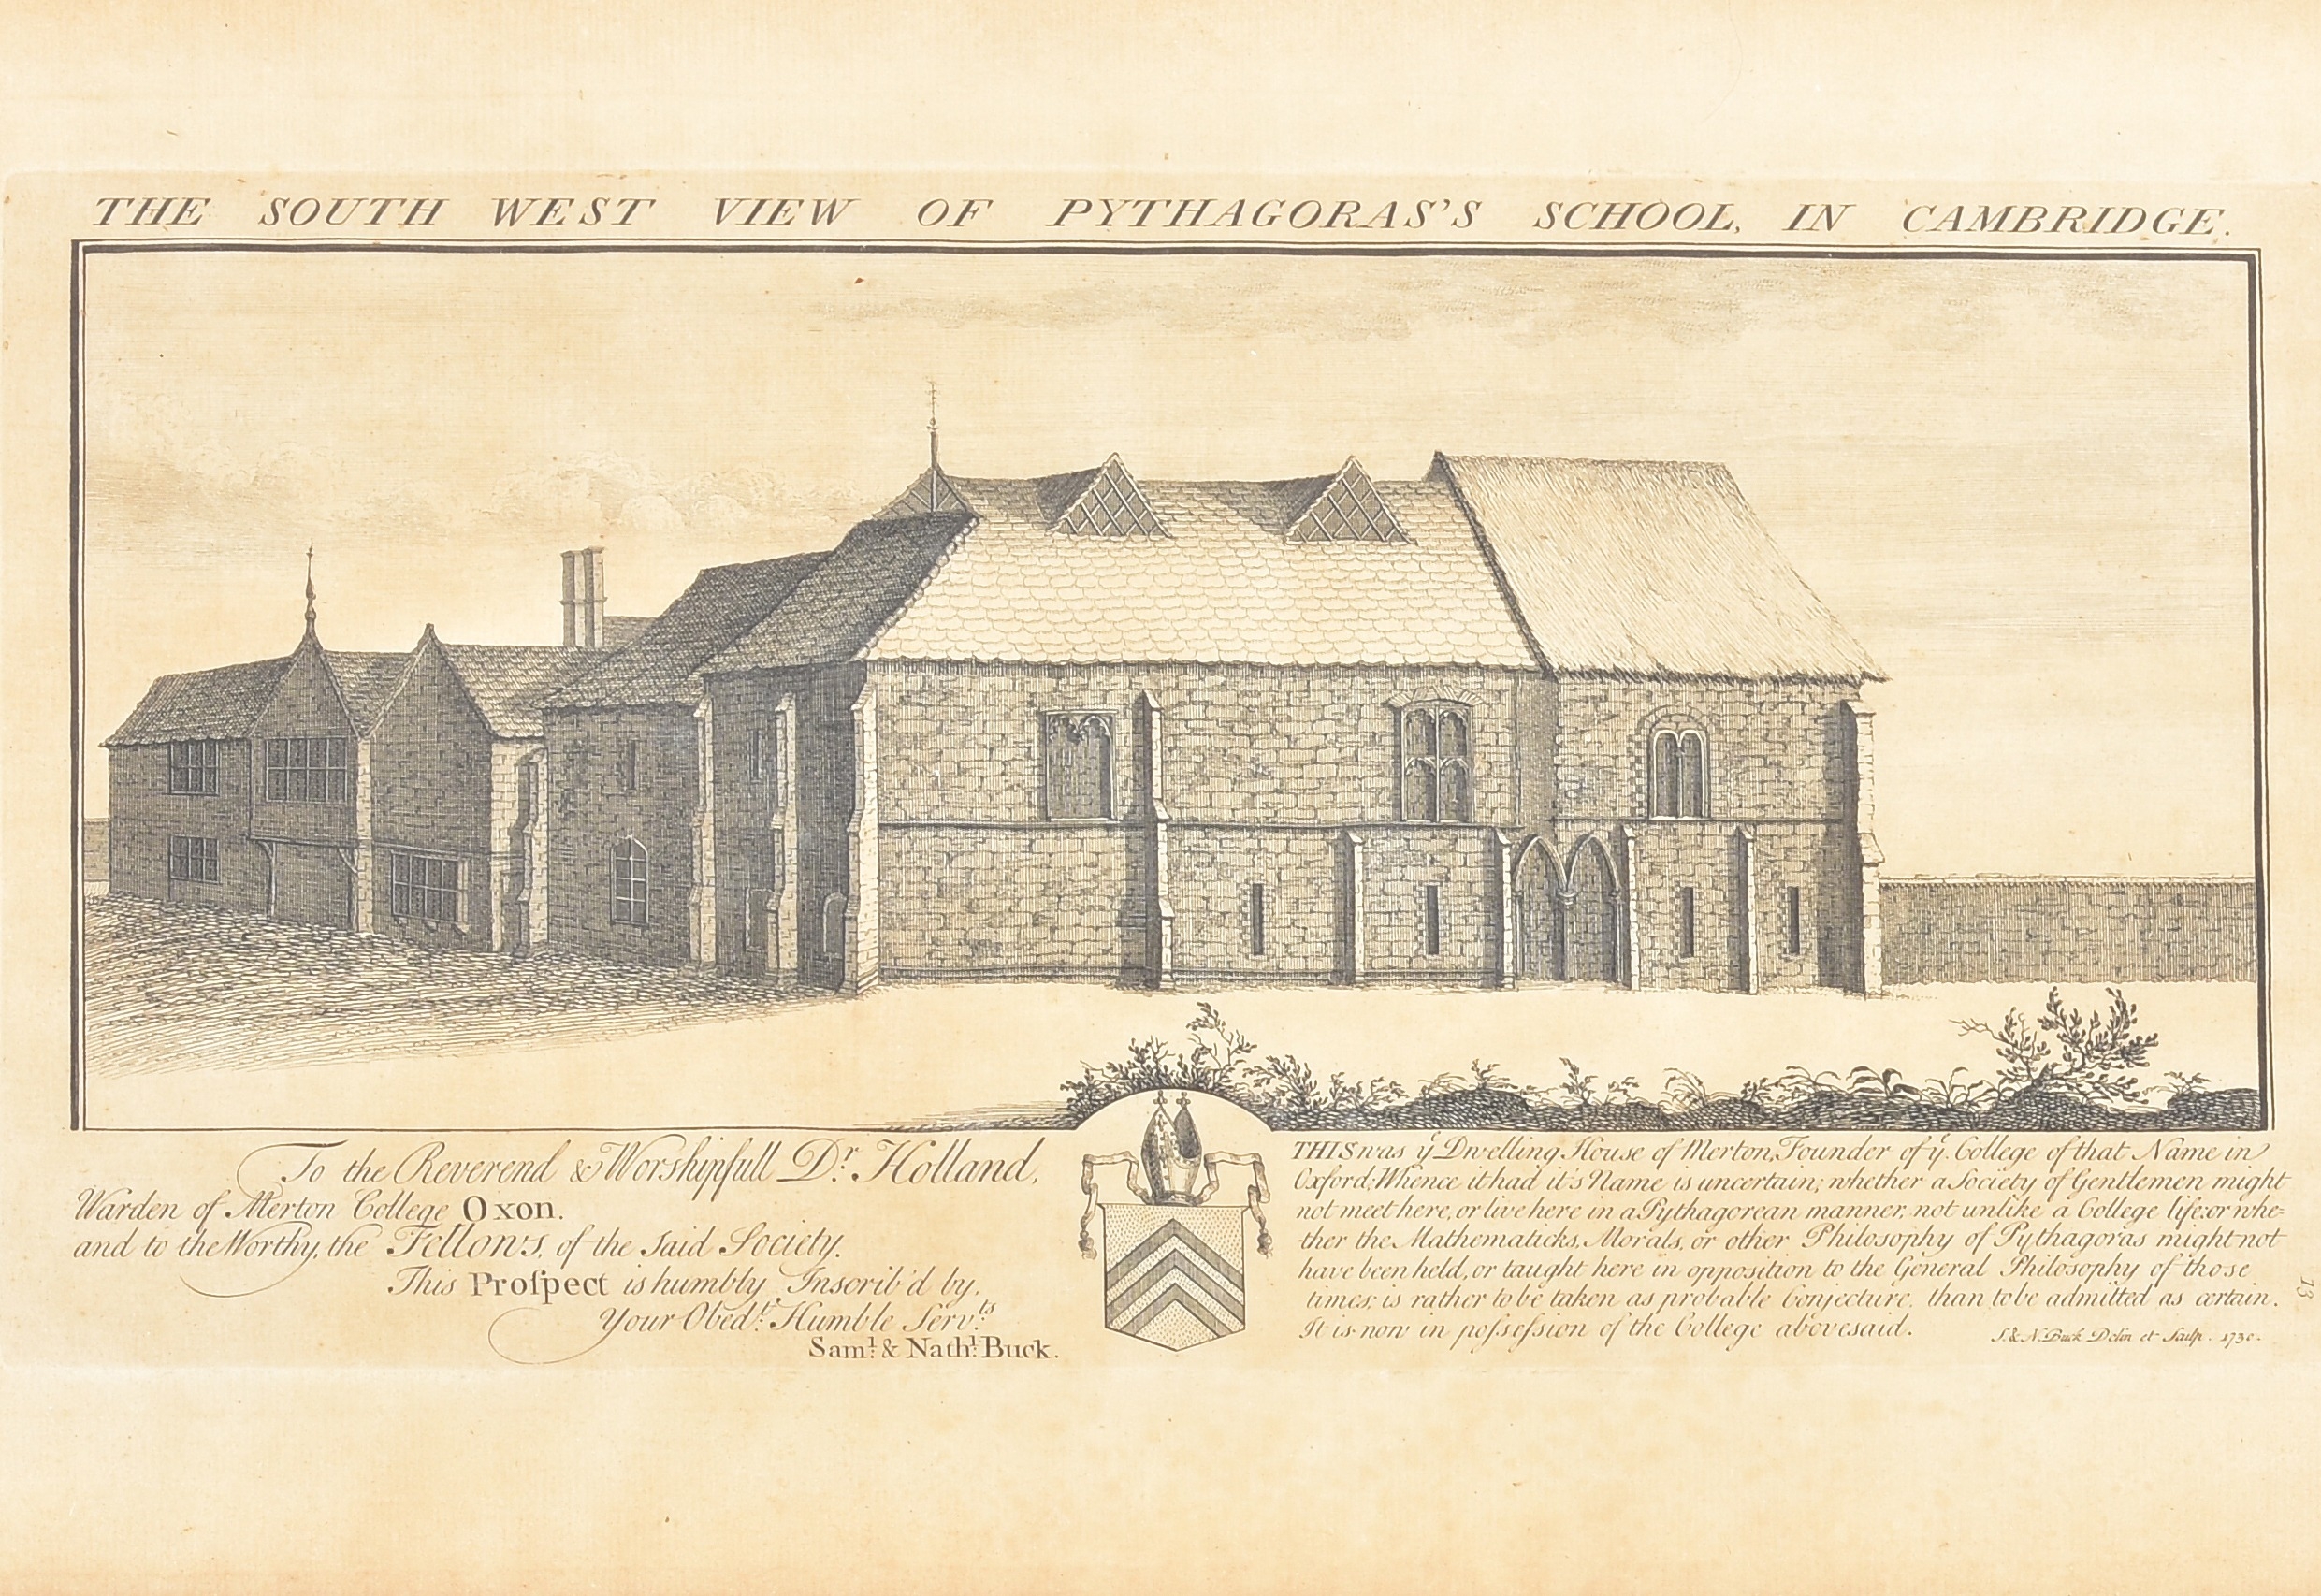 THE SOUTH WEST VIEW OF PYTHAGORAS'S SCHOOL, IN CAMBRIDGE.
To the Reverend & Worshipfull Dr. Holland,
Warden of Merton College Oxon.
and to the Worthy, the Fellows, of the said Society.
This Proſpect is humbly Inscrib'd by,
Your Obedt. Humble Servts.
Saml. & Nathl. Buck.
THIS was ye. Dwelling House of Merton, Founder of ye. College of that Name in
Oxford; Whence it had it's Name is uncertain; whether a Society of Gentlemen might
not meet here, or live here in a Pythagorean manner, not unlike a College life; or whe-
ther the Mathematicks, Morals, or other Philosophy of Pythagoras might not
have been held, or taught here in opposition to the General Philosophy of those
times; is rather to be taken as probable Conjecture, than to be admitted as certain.
It is now in poſseſsion of the College abovesaid.
S. & N. Buck Delin et Sculp. 1730.
13